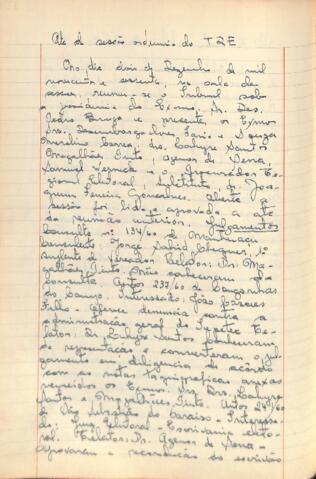 Ata da sessão ordinária do TRE
Ao dia dois de Dezembro de mil
novecentos e sessenta, na sala das
sessões, reuniu-se o Tribunal sob
a presidência do Exmo. Sr. Des.
João Braga e presente, os Exmos
Drs. Desembargadores, Faria e Souza
Merolino Correa, drs. Cunha Santos
Magalhães Pinto, Agenor de Sena,
Samuel e o Procurador Re-
gional Eleitoral, substituto, dr. Joa-
quim Ferreira Gonçalves. Aberta a
sessão foi lida e aprovada a ata
da reunião anterior. Julgamentos
Consulta n. 134/60 de Manhuaçu
Consulente Jorge
de Vereador. Relator: Dr. Ma-
galhães Pinto. Não conheceram da
consulta. Autos 237/60 de Congonhas
do Campo. Interessado: João
Filho - Oferece denúncia contra a
administração geral do Re-
lator: Dr. Santos. Conheceram
da representação e converteram o jul-
gamento em diligência de acordo
com as notas taquigráficas anexas
vencidos os Exmos. Srs. Drs.
Santos e Magalhães Pinto. Autos 240/60
de São Sebastião do Paraíso - Interessa-
do: Juiz Eleitoral - Escrivania eleito-
ral. Relator: Dr. Agenor de Sena -
Aprovaram a recondução do escrivão